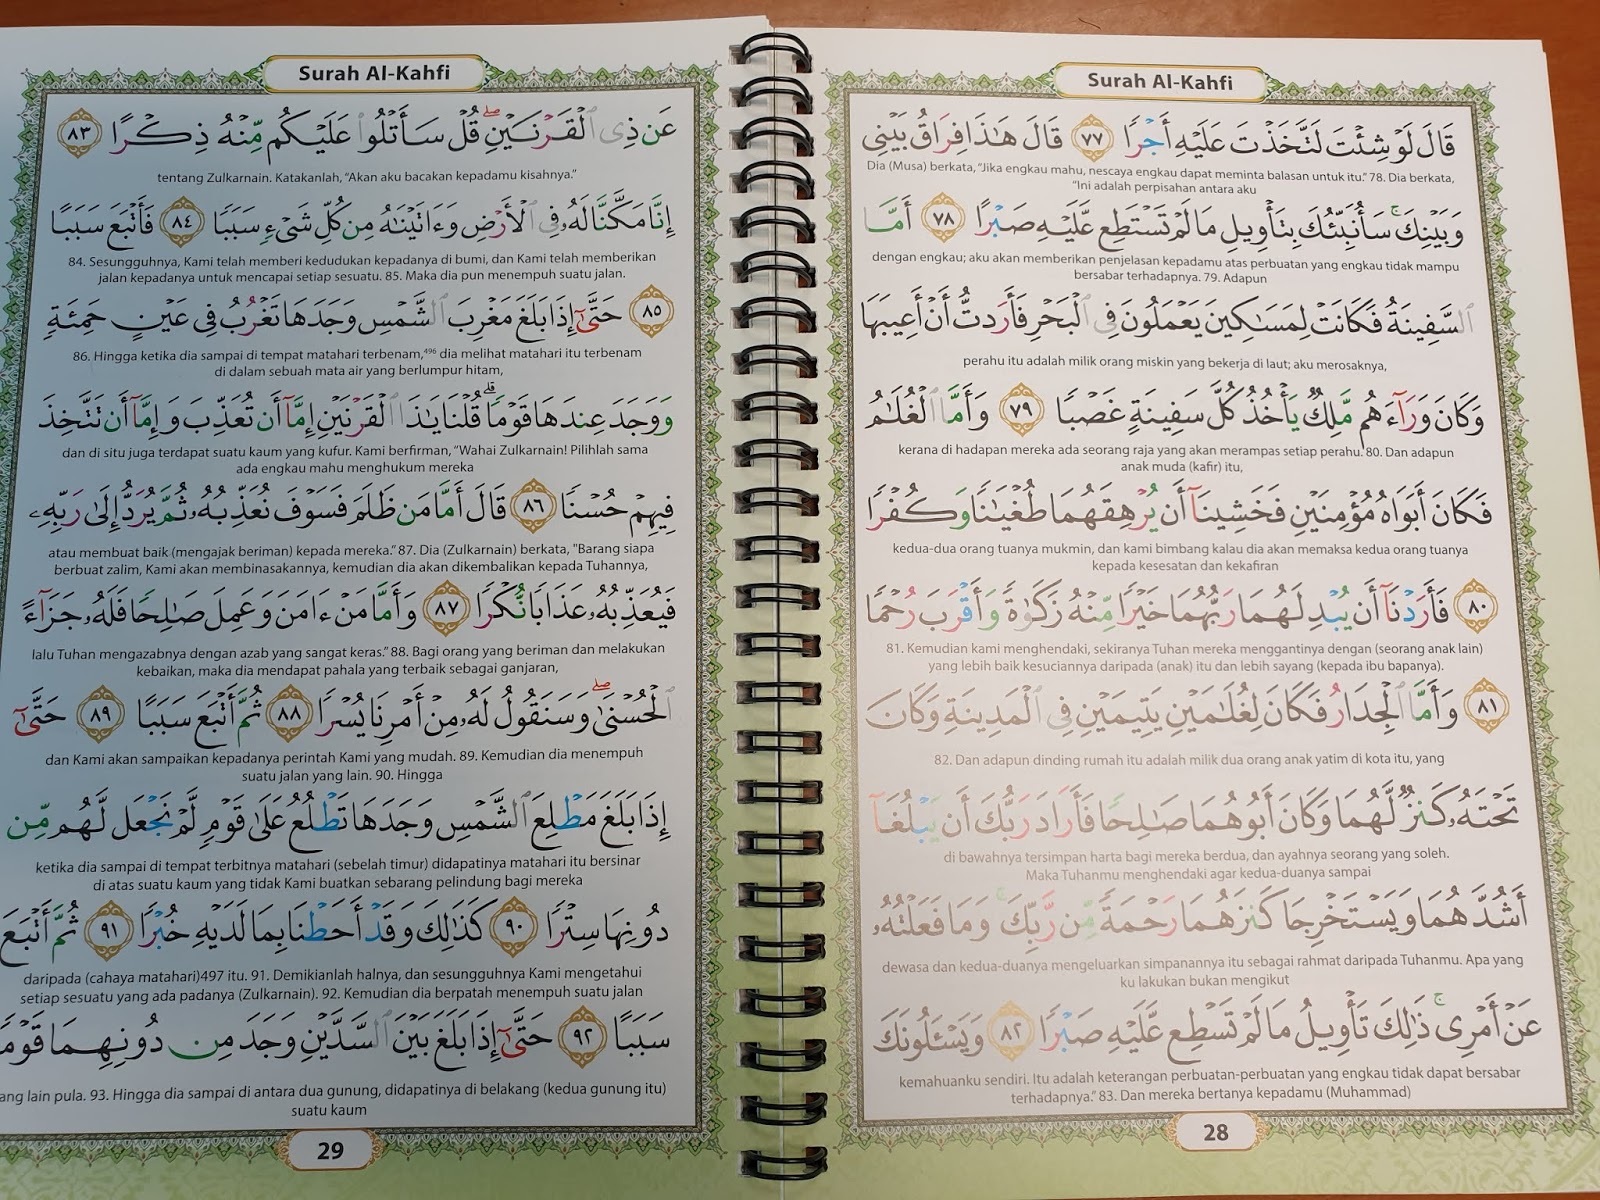 Surah Al-Kahfi
قَالَ لَوْ شِئْتَ لَتَّخَذْتَ عَلَيْهِ أَجْرًا ٧٧ قَالَ هَـٰذَا فِرَاقُ بَيْنِى
Dia (Musa) berkata, “Jika engkau mahu, nescaya engkau dapat meminta balasan untuk itu.” 78. Dia berkata,
“Ini adalah perpisahan antara aku
وَبَيْنِكَ ۚ سَأُنَبِّئُكَ بِتَأْوِيلِ مَا لَمْ تَسْتَطِع عَّلَيْهِ صَبْرًا ٧٨ أَمَّا
dengan engkau; aku akan memberikan penjelasan kepadamu atas perbuatan yang engkau tidak mampu
bersabar terhadapnya. 79. Adapun
ٱلسَّفِينَةُ فَكَانَتْ لِمَسَـٰكِينَ يَعْمَلُونَ فِى ٱلْبَحْرِ فَأَرَدتُّ أَنْ أَعِيبَهَا
perahu itu adalah milik orang miskin yang bekerja di laut; aku merosaknya,
وَكَانَ وَرَآءَهُم مَّلِكٌ يَأْخُذُ كُلَّ سَفِينَةٍ غَصْبًا ٧٩ وَأَمَّا ٱلْغُلَـٰمُ
kerana di hadapan mereka ada seorang raja yang akan merampas setiap perahu. 80. Dan adapun
anak muda (kafir) itu,
فَكَانَ أَبَوَاهُ مُؤْمِنَيْنِ فَخَشِينَآ أَن يُرْهِقَهُمَا طُغْيَـٰنًا وَكُفْرًا
kedua-dua orang tuanya mukmin, dan kami bimbang kalau dia akan memaksa kedua orang tuanya
kepada kesesatan dan kekafiran
٨٠ فَأَرَدْنَآ أَن يُبْدِلَهُمَا رَبُّهُمَا خَيْرًا مِّنْهُ زَكَوٰةً وَأَقْرَبَ رُحْمًا
81. Kemudian kami menghendaki, sekiranya Tuhan mereka menggantinya dengan (seorang anak lain)
yang lebih baik kesuciannya daripada (anak) itu dan lebih sayang (kepada ibu bapanya).
٨١ وَأَمَّا ٱلْجِدَارُ فَكَانَ لِغُلَـٰمَيْنِ يَتِيمَيْنِ فِى ٱلْمَدِينَةِ وَكَانَ
82. Dan adapun dinding rumah itu adalah milik dua orang anak yatim di kota itu, yang
تَحْتَهُۥ كَنزٌ لَّهُمَا وَكَانَ أَبُوهُمَا صَـٰلِحًا فَأَرَادَ رَبُّكَ أَن يَبْلُغَآ
di bawahnya tersimpan harta bagi mereka berdua, dan ayahnya seorang yang soleh.
Maka Tuhanmu menghendaki agar kedua-duanya sampai
أَشُدَّهُمَا وَيَسْتَخْرِجَا كَنزَهُمَا رَحْمَةً مِّن رَّبِّكَ ۚ وَمَا فَعَلْتُهُۥ
dewasa dan kedua-duanya mengeluarkan simpanannya itu sebagai rahmat daripada Tuhanmu. Apa yang
ku lakukan bukan mengikut
عَنْ أَمْرِى ۚ ذَٰلِكَ تَأْوِيلُ مَا لَمْ تَسْطِع عَّلَيْهِ صَبْرًا ٨٢ وَيَسْـَٔلُونَكَ
kemahuanku sendiri. Itu adalah keterangan perbuatan-perbuatan yang engkau tidak dapat bersabar
terhadapnya.” 83. Dan mereka bertanya kepadamu (Muhammad)
28
Surah Al-Kahfi
عَن ذِى ٱلْقَرْنَيْنِ ۖ قُلْ سَأَتْلُوا۟ عَلَيْكُم مِّنْهُ ذِكْرًا ٨٣
tentang Zulkarnain. Katakanlah, “Akan aku bacakan kepadamu kisahnya.”
إِنَّا مَكَّنَّا لَهُۥ فِى ٱلْأَرْضِ وَءَاتَيْنَـٰهُ مِن كُلِّ شَىْءٍ سَبَبًا ٨٤ فَأَتْبَعَ سَبَبًا
84. Sesungguhnya, Kami telah memberi kedudukan kepadanya di bumi, dan Kami telah memberikan
jalan kepadanya untuk mencapai setiap sesuatu. 85. Maka dia pun menempuh suatu jalan.
٨٥ حَتَّىٰٓ إِذَا بَلَغَ مَغْرِبَ ٱلشَّمْسِ وَجَدَهَا تَغْرُبُ فِى عَيْنٍ حَمِئَةٍ
86. Hingga ketika dia sampai di tempat matahari terbenam,⁴⁹⁶ dia melihat matahari itu terbenam
di dalam sebuah mata air yang berlumpur hitam,
وَوَجَدَ عِندَهَا قَوْمًا ۗ قُلْنَا يَـٰذَا ٱلْقَرْنَيْنِ إِمَّآ أَن تُعَذِّبَ وَإِمَّآ أَن تَتَّخِذَ
dan di situ juga terdapat suatu kaum yang kufur. Kami berfirman, “Wahai Zulkarnain! Pilihlah sama
ada engkau mahu menghukum mereka
فِيهِمْ حُسْنًا ٨٦ قَالَ أَمَّا مَن ظَلَمَ فَسَوْفَ نُعَذِّبُهُۥ ثُمَّ يُرَدُّ إِلَىٰ رَبِّهِۦ
atau membuat baik (mengajak beriman) kepada mereka.” 87. Dia (Zulkarnain) berkata, "Barang siapa
berbuat zalim, Kami akan membinasakannya, kemudian dia akan dikembalikan kepada Tuhannya,
فَيُعَذِّبُهُۥ عَذَابًا نُّكْرًا ٨٧ وَأَمَّا مَنْ ءَامَنَ وَعَمِلَ صَـٰلِحًا فَلَهُۥ جَزَآءً
lalu Tuhan mengazabnya dengan azab yang sangat keras.” 88. Bagi orang yang beriman dan melakukan
kebaikan, maka dia mendapat pahala yang terbaik sebagai ganjaran,
ٱلْحُسْنَىٰ ۖ وَسَنَقُولُ لَهُۥ مِنْ أَمْرِنَا يُسْرًا ٨٨ ثُمَّ أَتْبَعَ سَبَبًا ٨٩ حَتَّىٰٓ
dan Kami akan sampaikan kepadanya perintah Kami yang mudah. 89. Kemudian dia menempuh
suatu jalan yang lain. 90. Hingga
إِذَا بَلَغَ مَطْلِعَ ٱلشَّمْسِ وَجَدَهَا تَطْلُعُ عَلَىٰ قَوْمٍ لَّمْ نَجْعَل لَّهُم مِّن
ketika dia sampai di tempat terbitnya matahari (sebelah timur) didapatinya matahari itu bersinar
di atas suatu kaum yang tidak Kami buatkan sebarang pelindung bagi mereka
دُونِهَا سِتْرًا ٩٠ كَذَٰلِكَ وَقَدْ أَحَطْنَا بِمَا لَدَيْهِ خُبْرًا ٩١ ثُمَّ أَتْبَعَ
daripada (cahaya matahari)497 itu. 91. Demikianlah halnya, dan sesungguhnya Kami mengetahui
setiap sesuatu yang ada padanya (Zulkarnain). 92. Kemudian dia berpatah menempuh suatu jalan
سَبَبًا ٩٢ حَتَّىٰٓ إِذَا بَلَغَ بَيْنَ ٱلسَّدَّيْنِ وَجَدَ مِن دُونِهِمَا قَوْمًا
ang lain pula. 93. Hingga dia sampai di antara dua gunung, didapatinya di belakang (kedua gunung itu)
suatu kaum
29